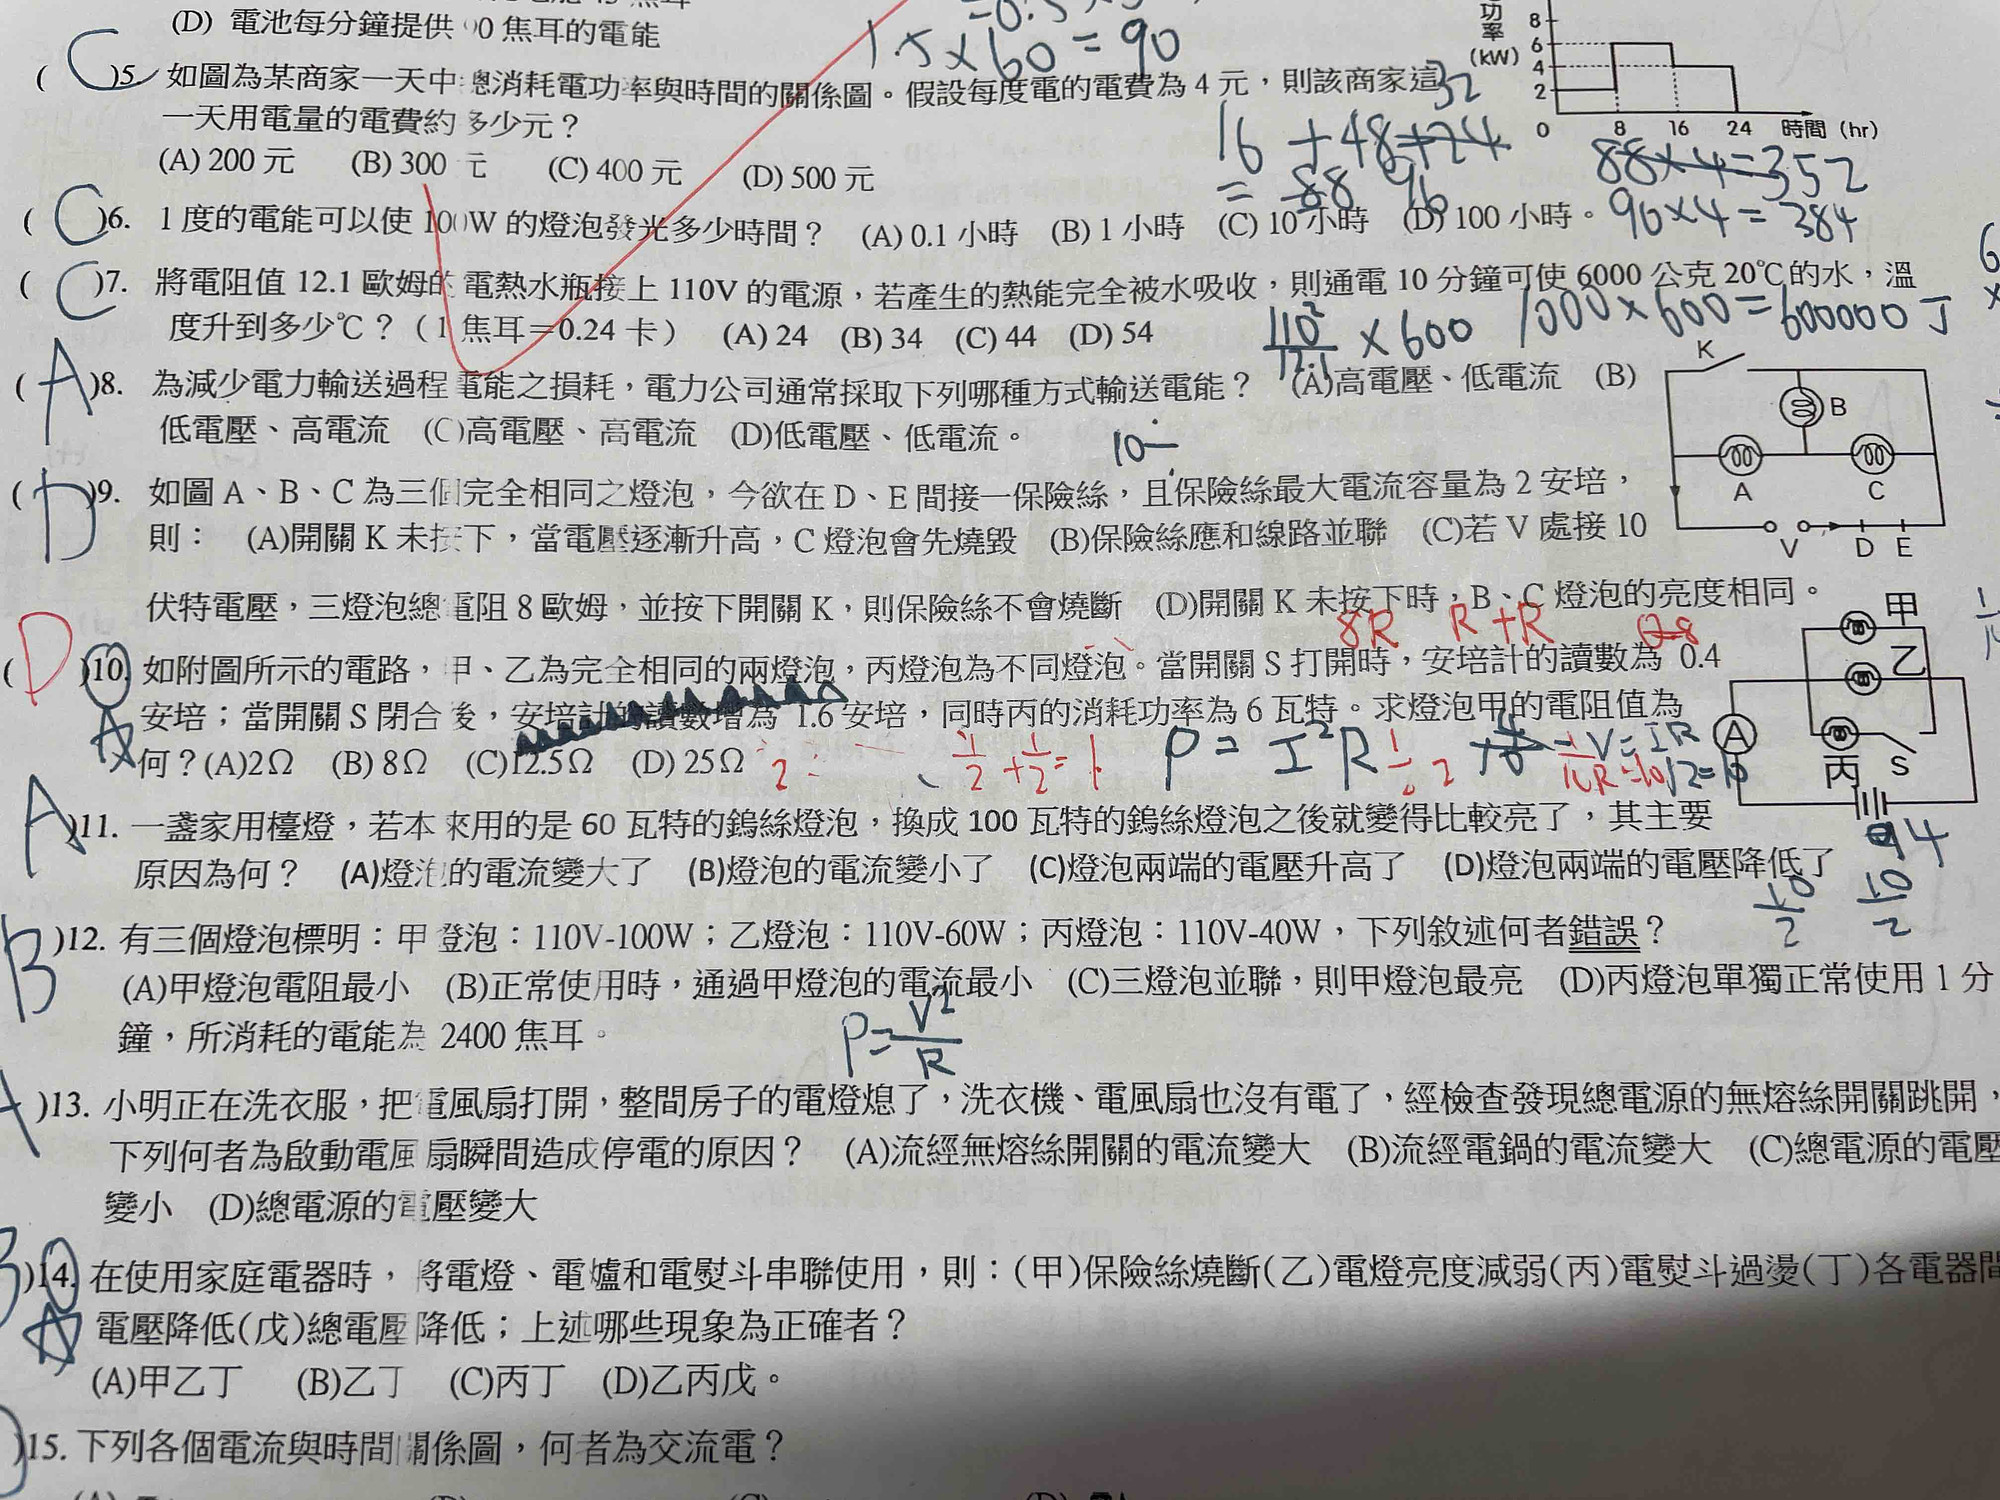 (D) 電池每分鐘提供 90 焦耳的電能
1.5×60=90
功率(kW)
8
6
4
2
0 8 16 24 時間 (hr)
( C )5. 如圖為某商家一天中總消耗電功率與時間的關係圖。假設每度電的電費為 4 元,則該商家這
一天用電量的電費約多少元?
(A) 200 元 (B) 300 元 (C) 400 元 (D) 500 元
32
16+48+24
=88 96
88×4=352
96×4=384
( C )6. 1 度的電能可以使 100W 的燈泡發光多少時間? (A) 0.1 小時 (B) 1 小時 (C) 10 小時 (D) 100 小時。
( C )7. 將電阻值 12.1 歐姆的電熱水瓶接上 110V 的電源,若產生的熱能完全被水吸收,則通電 10 分鐘可使 6000 公克 20℃的水,溫
度升到多少℃?(1 焦耳=0.24 卡) (A) 24 (B) 34 (C) 44 (D) 54
110²/12.1 ×600 1000×600=600000J
( A )8. 為減少電力輸送過程電能之損耗,電力公司通常採取下列哪種方式輸送電能? (A)高電壓、低電流 (B)
低電壓、高電流 (C)高電壓、高電流 (D)低電壓、低電流。
K
B
A C
V D E
( D )9. 如圖 A、B、C 為三個完全相同之燈泡,今欲在 D、E 間接一保險絲,且保險絲最大電流容量為 2 安培,
則: (A)開關 K 未按下,當電壓逐漸升高,C 燈泡會先燒毀 (B)保險絲應和線路並聯 (C)若 V 處接 10
伏特電壓,三燈泡總電阻 8 歐姆,並按下開關 K,則保險絲不會燒斷 (D)開關 K 未按下時,B、C 燈泡的亮度相同。
8R R+R
( D )10. 如附圖所示的電路,甲、乙為完全相同的兩燈泡,丙燈泡為不同燈泡。當開關 S 打開時,安培計的讀數為 0.4
安培;當開關 S 閉合後,安培計的讀數增為 1.6 安培,同時丙的消耗功率為 6 瓦特。求燈泡甲的電阻值為
何?(A)2Ω (B) 8Ω (C)12.5Ω (D) 25Ω
1/2+1/2=1 P=I²R V=IR
甲
乙
A
丙 S
( A )11. 一盞家用檯燈,若本來用的是 60 瓦特的鎢絲燈泡,換成 100 瓦特的鎢絲燈泡之後就變得比較亮了,其主要
原因為何? (A)燈泡的電流變大了 (B)燈泡的電流變小了 (C)燈泡兩端的電壓升高了 (D)燈泡兩端的電壓降低了
10/2 10/2
B )12. 有三個燈泡標明:甲燈泡:110V-100W;乙燈泡:110V-60W;丙燈泡:110V-40W,下列敘述何者錯誤?
(A)甲燈泡電阻最小 (B)正常使用時,通過甲燈泡的電流最小 (C)三燈泡並聯,則甲燈泡最亮 (D)丙燈泡單獨正常使用 1 分
鐘,所消耗的電能為 2400 焦耳。
P=V²/R
A )13. 小明正在洗衣服,把電風扇打開,整間房子的電燈熄了,洗衣機、電風扇也沒有電了,經檢查發現總電源的無熔絲開關跳開,
下列何者為啟動電風扇瞬間造成停電的原因? (A)流經無熔絲開關的電流變大 (B)流經電鍋的電流變大 (C)總電源的電壓
變小 (D)總電源的電壓變大
B )14. 在使用家庭電器時,將電燈、電爐和電熨斗串聯使用,則:(甲)保險絲燒斷(乙)電燈亮度減弱(丙)電熨斗過燙(丁)各電器間
電壓降低(戊)總電壓降低;上述哪些現象為正確者?
(A)甲乙丁 (B)乙丁 (C)丙丁 (D)乙丙戊。
)15. 下列各個電流與時間關係圖,何者為交流電?